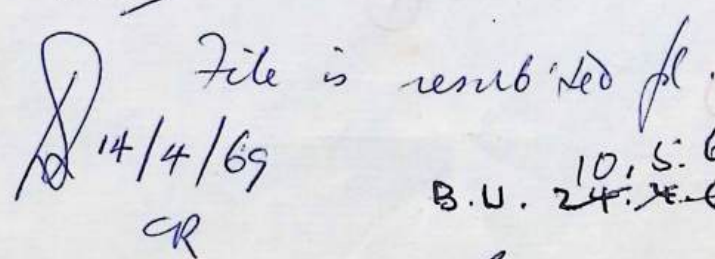 File is resub'ted pl.
14/4/69
10.5.6
B.U. 24.4.6
CR